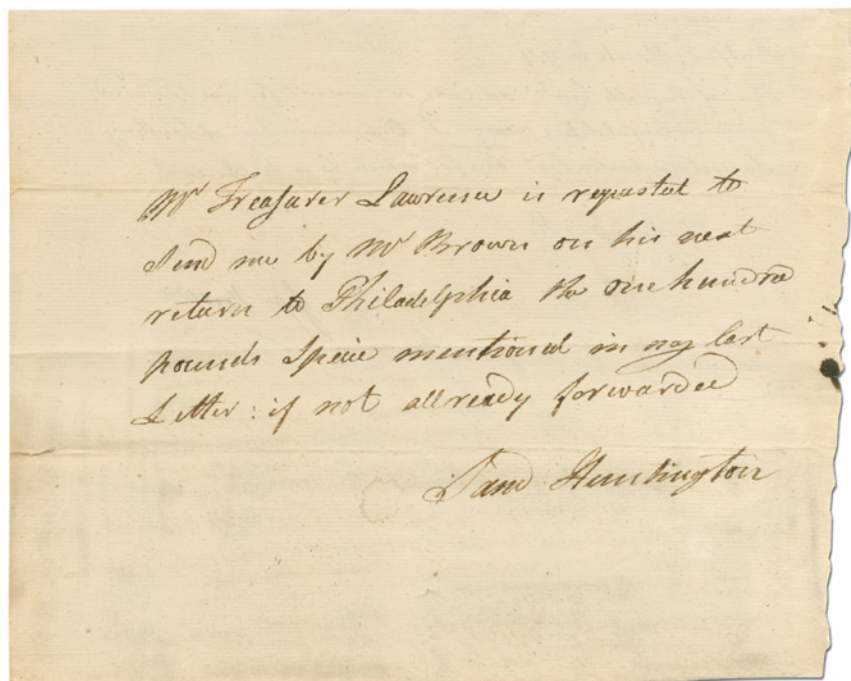 Mr Treasurer Lawrence is requested to
Send me by Mr Brown on his next
return to Philadelphia the one hundred
pounds Specie mentioned in my last
Letter: if not allready forwarded
Saml Huntington